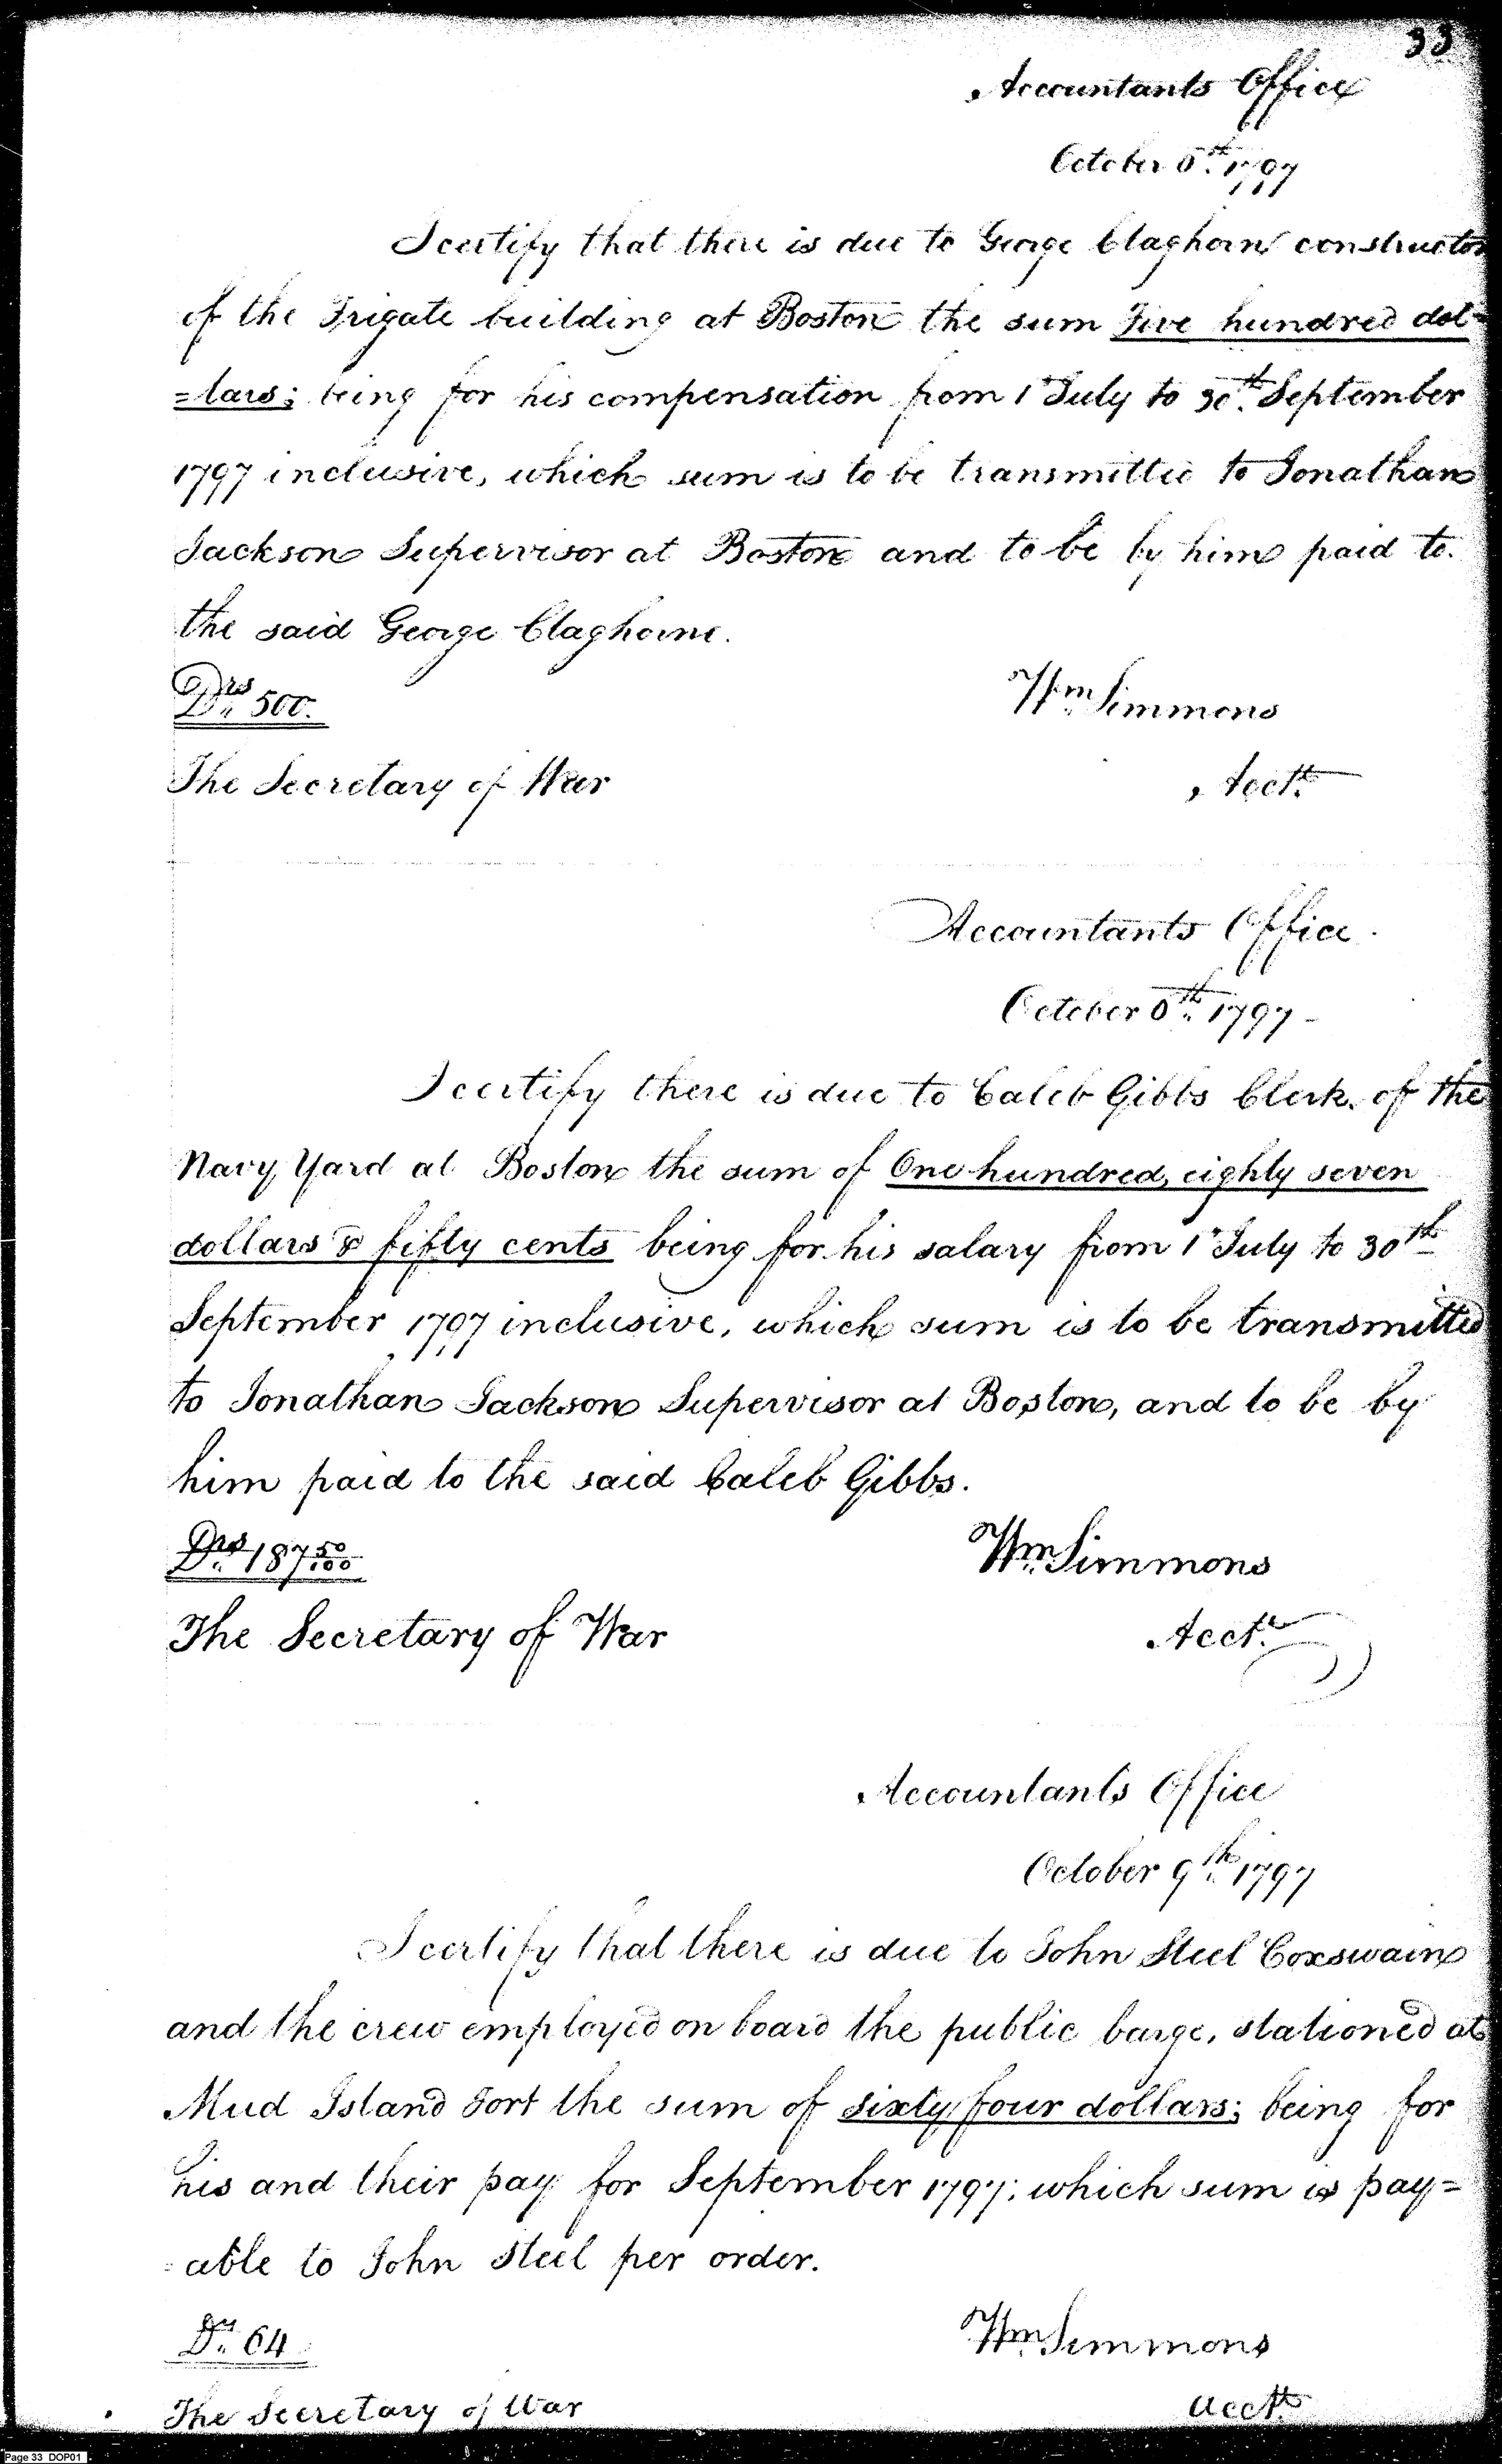 33
Accountants Office
October 6th 1797
I certify that there is due to George Claghorn constructor
of the Frigate building at Boston the sum Five hundred dol=
=lars; being for his compensation from 1st July to 30th September
1797 inclusive, which sum is to be transmitted to Jonathan
Jackson Supervisor at Boston and to be by him paid to
the said George Claghorne.
Drs 500.
Wm Simmons
The Secretary of War
Acctt
Accountants Office
October 6th 1797
I certify there is due to Caleb Gibbs Clerk of the
Navy Yard at Boston the sum of One hundred, eighty seven
dollars & fifty cents being for his salary from 1st July to 30th
September 1797 inclusive, which sum is to be transmitted
to Jonathan Jackson Supervisor at Boston, and to be by
him paid to the said Caleb Gibbs.
Drs 187 50/100
Wm Simmons
The Secretary of War
Acctt
Accountants Office
October 9th 1797
I certify that there is due to John Steel Coxswain
and the crew employed on board the public barge, stationed at
Mud Island Fort the sum of sixty four dollars; being for
his and their pay for September 1797; which sum is pay=
=able to John Steel per order.
Drs 64
Wm Simmons
The Secretary of War
Acctt
Page 33 DOP01